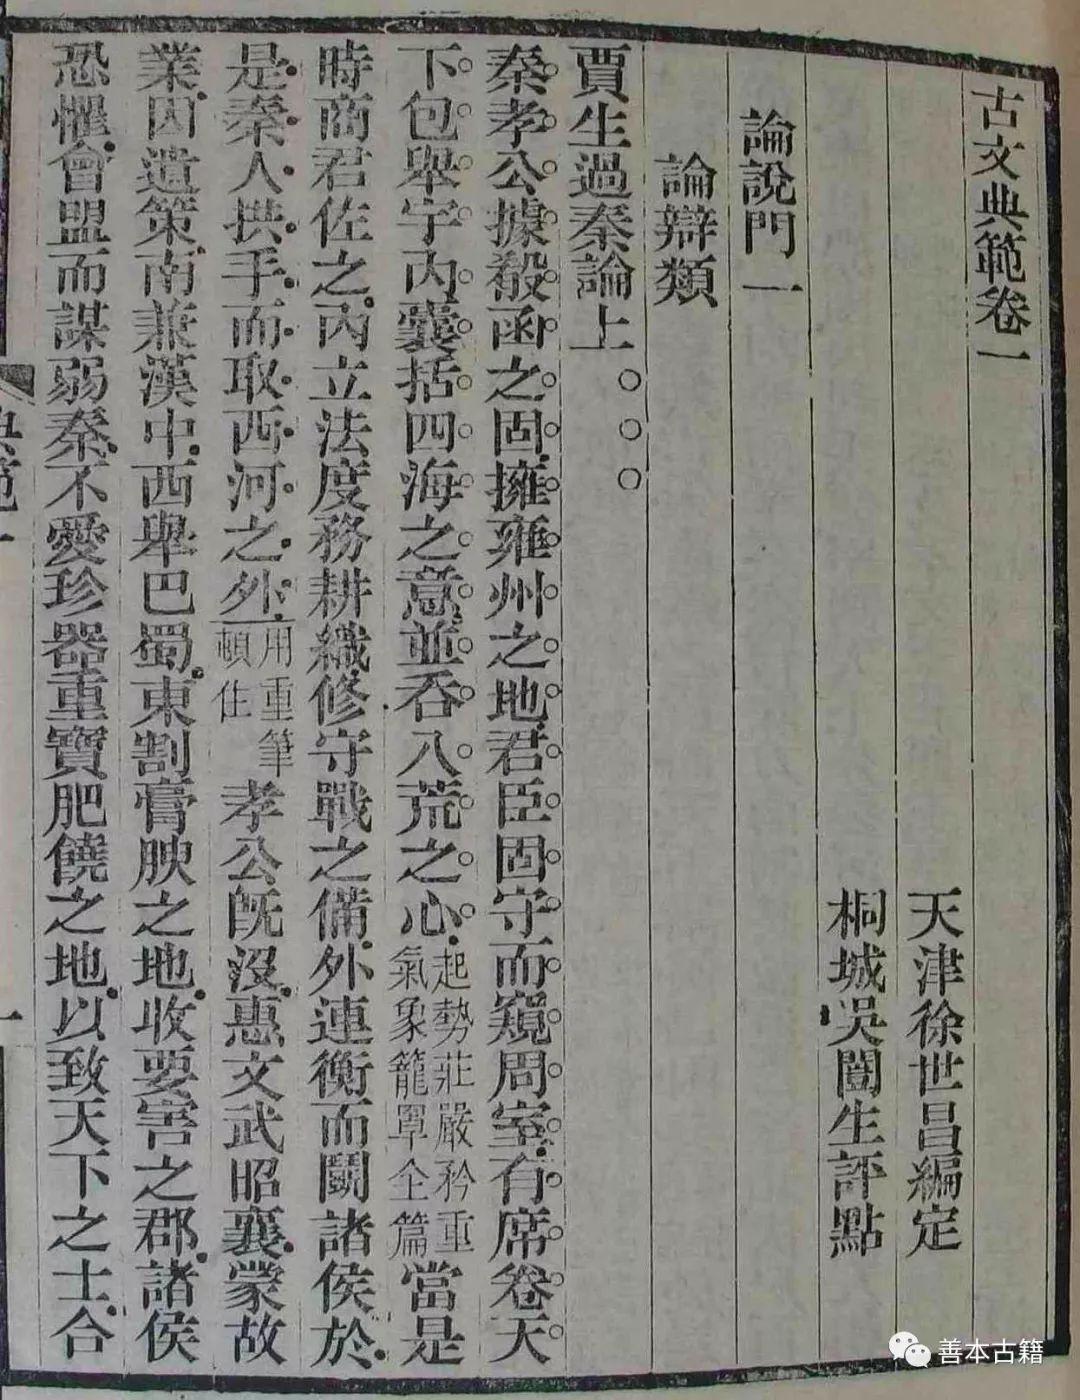 古文典範卷一
天津徐世昌編定
桐城吳闓生評點
論說門一
論辯類
賈生過秦論上○○○
秦孝公據殽函之固擁雍州之地君臣固守而窺周室有席卷天
下包舉宇內囊括四海之意並吞八荒之心起勢莊嚴矜重氣象籠罩全篇當是
時商君佐之內立法度務耕織修守戰之備外連衡而鬭諸侯於
是秦人拱手而取西河之外用重筆頓住孝公旣沒惠文武昭襄蒙故
業因遺策南兼漢中西舉巴蜀東割膏腴之地收要害之郡諸侯
恐懼會盟而謀弱秦不愛珍器重寶肥饒之地以致天下之士合
典範一
一
善本古籍